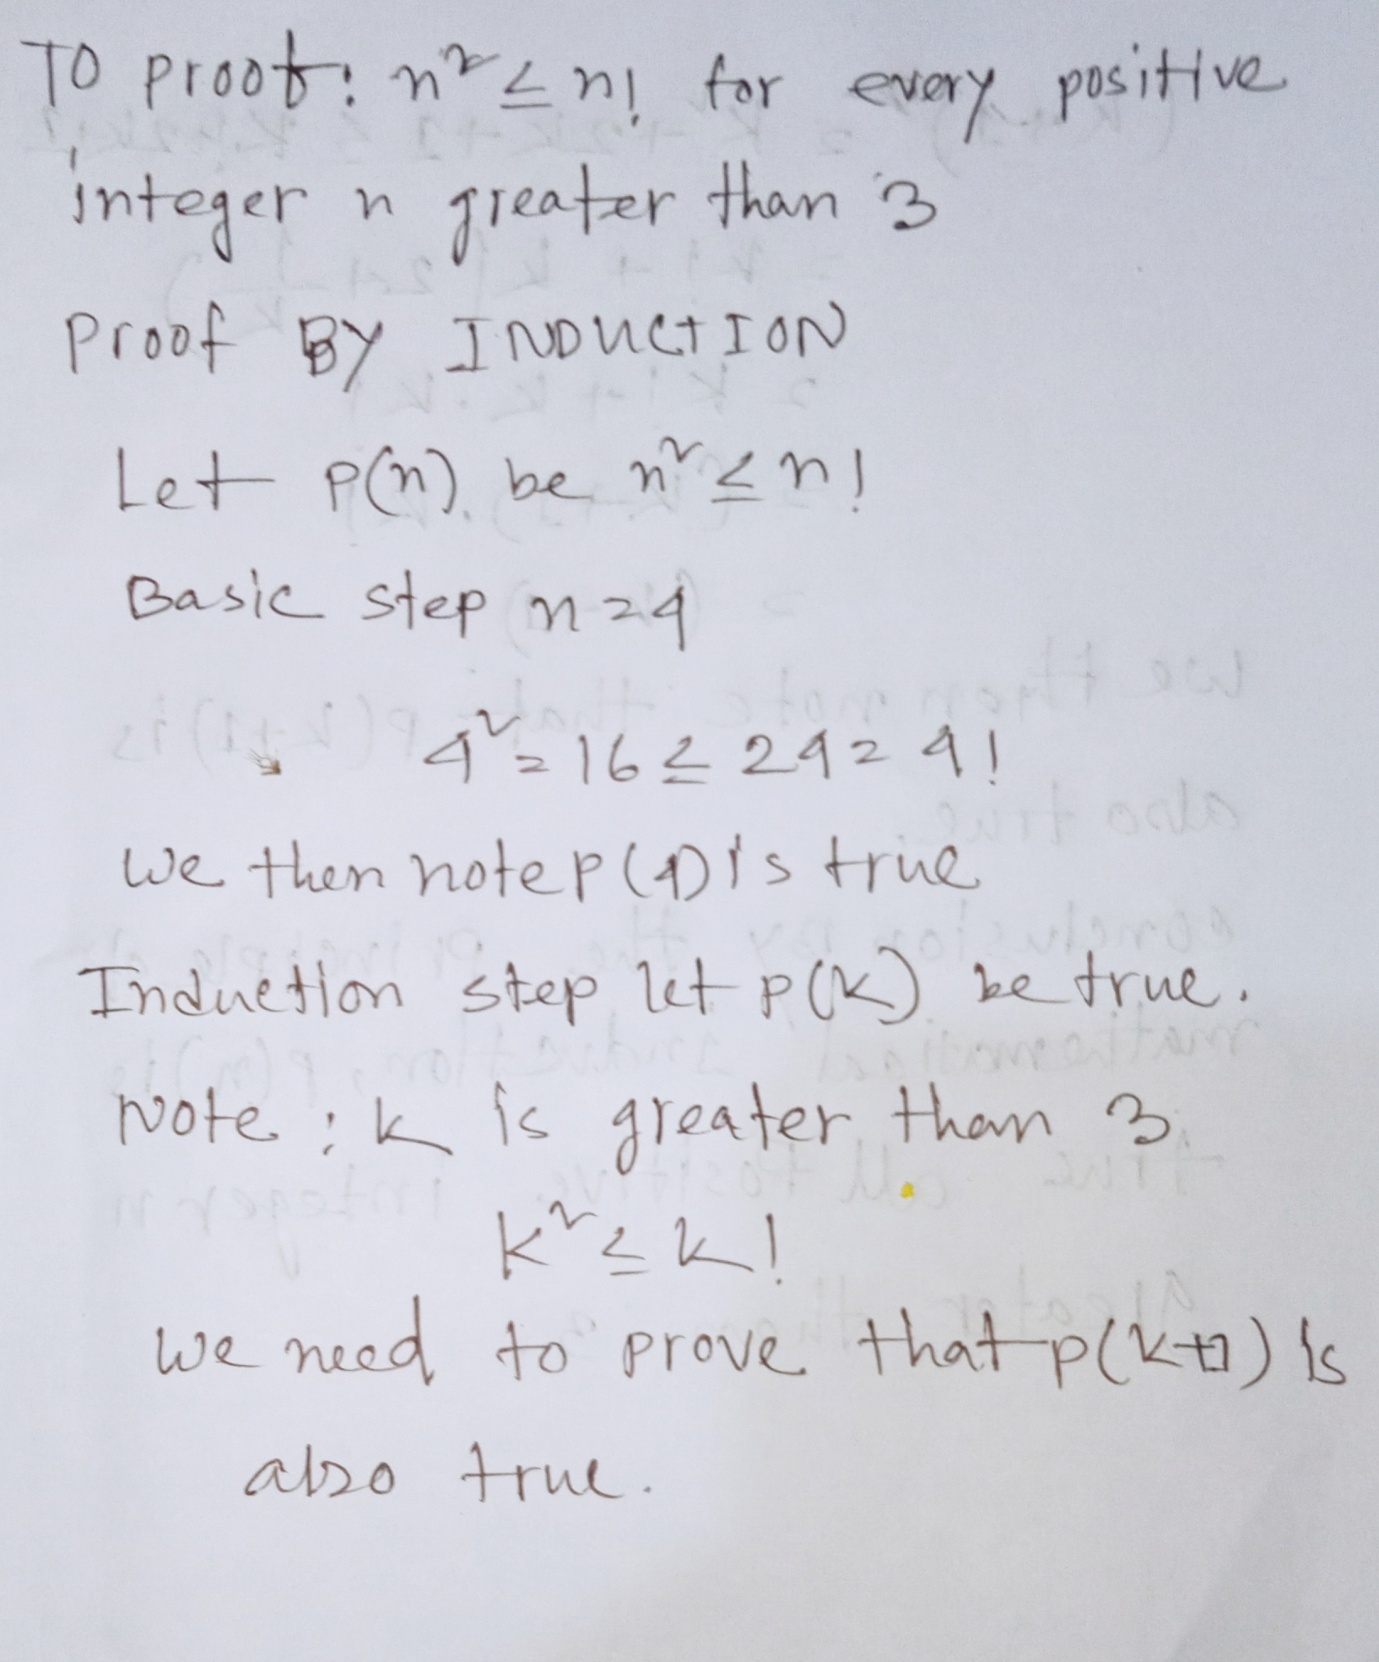 TO proof: n² ≤ n! for every positive
integer n greater than 3
Proof BY INDUCTION
Let P(n) be n² ≤ n!
Basic step n=4
4² = 16 ≤ 24 = 4!
we then note P(4) is true
Induction step let P(k) be true.
Note : k is greater than 3
k² ≤ k!
we need to prove that p(k+1) is
also true.